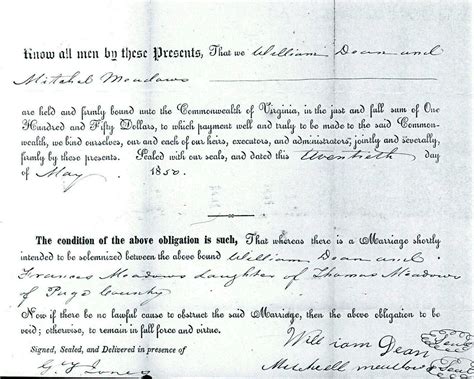 Know all men by these Presents, That we William Dean and
Mitchel Meadows
are held and firmly bound unto the Commonwealth of Virginia, in the just and full sum of One
Hundred and Fifty Dollars, to which payment well and truly to be made to the said Common-
wealth, we bind ourselves, our and each of our heirs, executors, and administrators, jointly and severally,
firmly by these presents. Sealed with our seals, and dated this twentieth day
of May 1850.
The condition of the above obligation is such, That whereas there is a Marriage shortly
intended to be solemnized between the above bound William Dean and
Frances Meadows daughter of Thomas Meadows
of Page County
Now if there be no lawful cause to obstruct the said Marriage, then the above obligation to be
void; otherwise, to remain in full force and virtue.
William Dean Seal
Signed, Sealed, and Delivered in presence of
Mitchell meadows Seal
G. Y. Jones